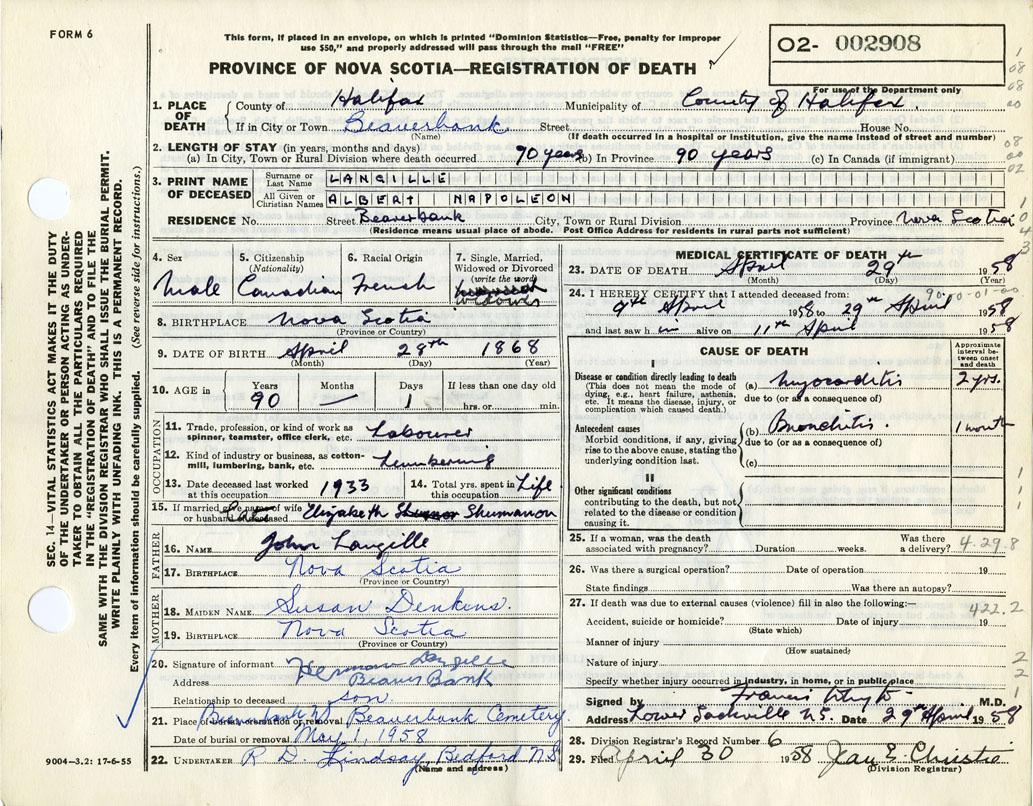 FORM 6
This form, if placed in an envelope, on which is printed "Dominion Statistics—Free, penalty for improper
use $50," and properly addressed will pass through the mail "FREE"
PROVINCE OF NOVA SCOTIA—REGISTRATION OF DEATH ✓
O2- 002908
For use of the Department only
1. PLACE OF DEATH { County of Halifax Municipality of County of Halifax.
If in City or Town Beaverbank Street House No.
(Name) (If death occurred in a hospital or Institution, give the name Instead of street and number)
2. LENGTH OF STAY (in years, months and days)
(a) In City, Town or Rural Division where death occurred 90 years (b) In Province 90 years (c) In Canada (if immigrant)
3. PRINT NAME OF DECEASED { Surname or Last Name LANGILLE
All Given or Christian Names ALBERT NAPOLEON
RESIDENCE No. Street Beaverbank City, Town or Rural Division Province Nova Scotia
(Residence means usual place of abode. Post Office Address for residents in rural parts not sufficient)
4. Sex 5. Citizenship (Nationality) 6. Racial Origin 7. Single, Married, Widowed or Divorced (write the word)
Male Canadian French Widower
8. BIRTHPLACE Nova Scotia
(Province or Country)
9. DATE OF BIRTH April 28th 1868
(Month) (Day) (Year)
10. AGE in Years Months Days If less than one day old
90 — 1 hrs. or min.
OCCUPATION
11. Trade, profession, or kind of work as spinner, teamster, office clerk, etc. Labourer
12. Kind of industry or business, as cotton-mill, lumbering, bank, etc. Lumbering
13. Date deceased last worked at this occupation 1933 14. Total yrs. spent in this occupation Life
15. If married give name of wife or husband of deceased Elizabeth Shumanon
FATHER
16. NAME John Langille
17. BIRTHPLACE Nova Scotia
(Province or Country)
MOTHER
18. MAIDEN NAME Susan Denkins.
19. BIRTHPLACE Nova Scotia
(Province or Country)
20. Signature of informant Herman Langille
Address Beaver Bank
Relationship to deceased son
21. Place of burial, cremation or removal Beaverbank Cemetery
Date of burial or removal May 1, 1958
22. UNDERTAKER R D. Lindsay, Bedford N.S.
(Name and address)
9004—3.2: 17-6-55
MEDICAL CERTIFICATE OF DEATH
23. DATE OF DEATH April 29th 1958
(Month) (Day) (Year)
90-10-01-00
24. I HEREBY CERTIFY that I attended deceased from:
9th April 1958 to 29th April 1958
and last saw h im alive on 11th April 1958
CAUSE OF DEATH
Approximate interval between onset and death
I
Disease or condition directly leading to death (a) Myocarditis 2 yrs.
(This does not mean the mode of dying, e.g., heart failure, asthenia, etc. It means the disease, injury, or complication which caused death.)
due to (or as a consequence of)
Antecedent causes (b) Bronchitis. 1 month
Morbid conditions, if any, giving rise to the above cause, stating the underlying condition last.
due to (or as a consequence of)
(c)
II
Other significant conditions
contributing to the death, but not related to the disease or condition causing it.
25. If a woman, was the death associated with pregnancy? Duration weeks. Was there a delivery? 4.29.8
26. Was there a surgical operation? Date of operation 19
State findings Was there an autopsy?
27. If death was due to external causes (violence) fill in also the following:— 422.2
Accident, suicide or homicide? Date of injury 19
(State which)
Manner of injury
(How sustained)
Nature of injury
Specify whether injury occurred in industry, in home, or in public place
Signed by Francis M.D.
Address Lower Sackville N.S. Date 29th April 1958
28. Division Registrar's Record Number 6
29. Filed April 30 1958 Jay E. Christie
(Division Registrar)
SEC. 14—VITAL STATISTICS ACT MAKES IT THE DUTY
OF THE UNDERTAKER OR PERSON ACTING AS UNDER-
TAKER TO OBTAIN ALL THE PARTICULARS REQUIRED
IN THE "REGISTRATION OF DEATH" AND TO FILE THE
SAME WITH THE DIVISION REGISTRAR WHO SHALL ISSUE THE BURIAL PERMIT.
WRITE PLAINLY WITH UNFADING INK. THIS IS A PERMANENT RECORD.
Every item of information should be carefully supplied. (See reverse side for instructions.)